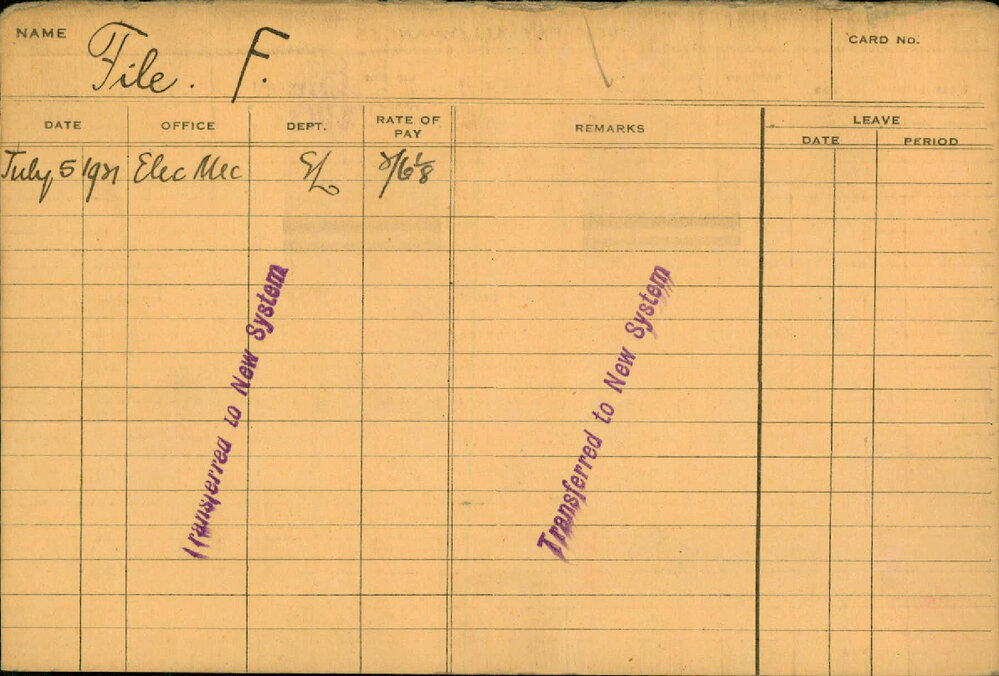 NAME File. F. CARD No.
LEAVE
DATE OFFICE DEPT. RATE OF PAY REMARKS DATE PERIOD
July 5 1921 Elec Mec EL 2/6⅛
Transferred to New System
Transferred to New System